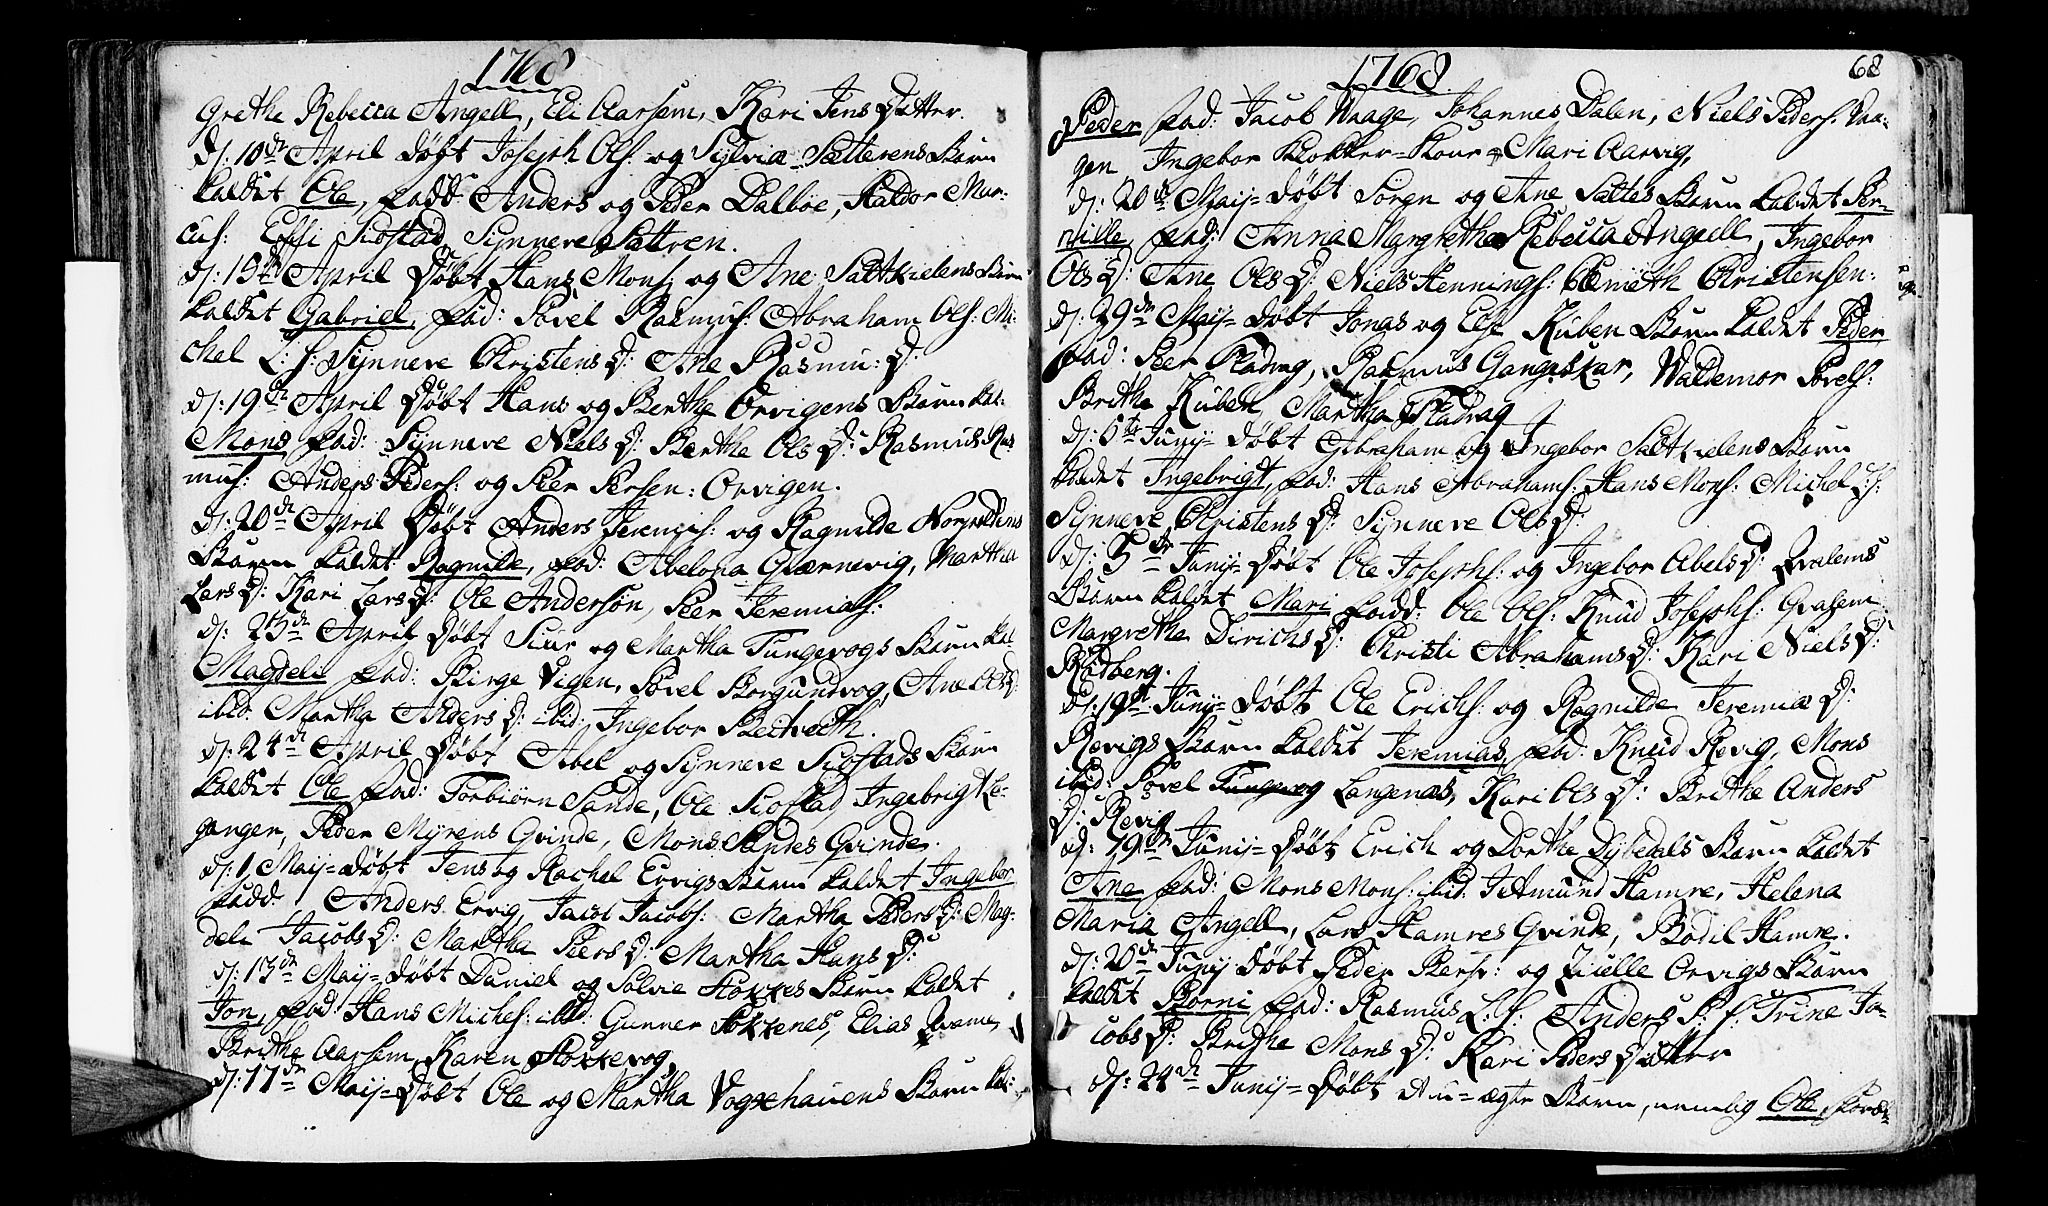 1768
Grethe Rebecca Angell, Eli Aarsem, Kari Jens Datter.
d: 10de April døbt Joseph Ols: og Sylvia Sætterens Barn
kaldet Ole, fadd: Anders og Peder Dalbøe, Haldor Mar-
cus: Effi Siostad Synneve Sættren.
d: 15de April Døbt Hans Mons: og Ane Saltkielens Barn
kaldet Gabriel, fad: Povel Rasmus: Abraham Ols: Mi-
chel L: f: Synneve Christens D: Ane Rasmu: D:
d: 19de April Døbt Hans og Berthe Orvigens Barn kal:
Mons fad: Synneve Niels D: Berthe Ols D: Rasmus Ras
mus: Anders Peders: og Peer Persen: Orvigen.
d: 20de April Døbt Anders Jeremis: og Ragnilde
Barn kaldet Ragnilde, fad: Abelona Giærnevig, Martha
Lars D: Kari Lars D: Ole Andersøn, Peer Jeremias:
d: 23de April Døbt Siur og Martha Tungevogs Barn kal
Magdeli fad: Birge Vigen, Povel Borgundvog, Ane Ols D:
ibid: Martha Anders D: ibid: Ingebor
d: 24de April Døbt Abel og Synneve Siostads Barn
kaldet Ole fad: Torbiørn Sande, Ole Siostad Ingebrigt Le-
gangen, Peder Myrens Qvinde, Mons Sandes Qvinde.
d: 1 Maij= døbt Jens og Rachel Ervigs Barn kaldet Ingebor
fadd: Anders Ervig, Jacob Jacobs: Martha Peders D: Mag-
deli Jacobs D: Martha Peers D: Martha Hans D:
d: 13de Maij= døbt Daniel og Sølvie Stokkes Barn kaldet
Jon, fad: Hans Michels: ibid: Gunner Stokkenes, Elias
Brithe Aarsem, Karen Stokkevog
d: 17de Maij= Døbt Ole og Martha Vogsehauens Barn kal:
1768
68
Peder fad: Jacob Waage, Johannes Dalen, Niels Peders: Vaa-
gen Ingebor Klokker-Kone Mari Aarvig,
d: 20de Maij= Døbt Sorgn og Ane Saltes Barn kaldet Per-
nille, fad: Anna Margrethe Rebecca Angell, Ingebor
Ols D: Ane Ols D: Niels Hennings: Christensen:
d: 29de Maij= Døbt Jonas og Else Kuben Barn kaldet Peder
fad: Peer Fladvag, Rasmus Gangeskar, Waldemor Povels:
Brithe Kuben, Martha Fladvag
d: 5te Junij= Døbt Abraham og Ingebor Saltkielens Barn
kaldet Ingebrigt, fad: Hans Abrahams: Hans Mons: Michel L: f:
Synneve Christens D: Synneve Ols D:
d: 5te Junij= Døbt Ole Josephs: og Ingebor Abels D: Qvalems
Barn kaldet Mari fadd: Ole Ols: Knud Josephs: Qvalem
Margrethe Dirichs D: Christi Abrahams D: Kari Niels D:
Rødberg.
d: 19de Junij= Døbt Ole Erichs: og Ragnilde Jeremiæ D:
Revigs Barn kaldet Jeremias, fad: Knud Revig, Mons
ibid: Povel Tungevog Langenæs, Kari Ols D: Brithe Anders
D: Revig
d: 19de Junij= Døbt Erich og Dorthe Dybedals Barn kaldet
Ane fad: Mons Mons: ibid: Amund Hamre, Helena
Maria Angell, Lars Hamres Qvinde, Bodil Hamre.
d: 20de Junij Døbt Peder Pers: og Zidelle Orvigs Barn
kaldet Borni fad: Rasmus L: f: Anders P: f: Trine Ja-
cobs D: Brithe Mons D: Kari Peders Datter
d: 24de Junij= Døbt et u=ægte Barn, nemlig Ole,